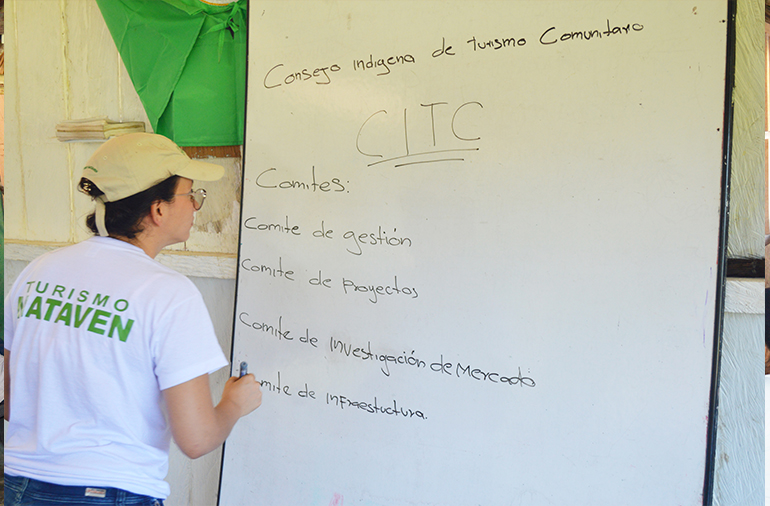 Consejo indigena de turismo Comunitario
CITC
Comites:
Comite de gestión
Comite de proyectos
Comite de Investigación de Mercado
omite de infraestuctura.
TURISMO
MATAVEN